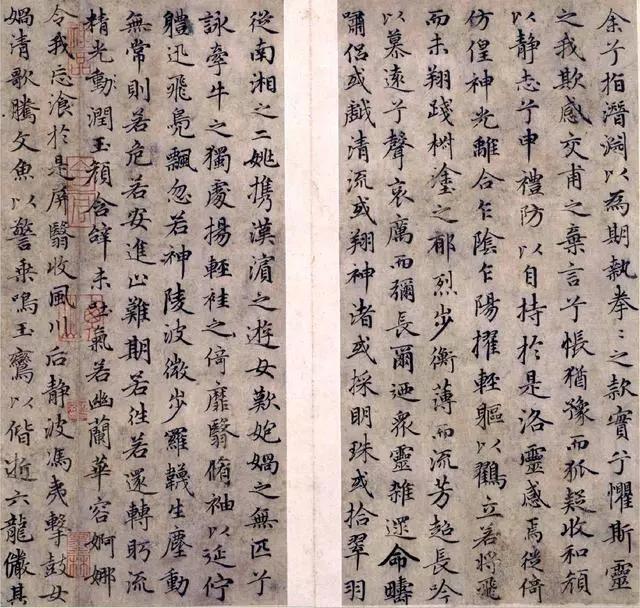 余兮指潛淵以為期執拳〻之款實兮懼斯靈
之我欺感交甫之棄言兮悵猶豫而狐疑收和顏
以靜志兮申禮防以自持於是洛靈感焉徙倚
仿偟神光離合乍陰乍陽擢輕軀以鶴立若將飛
而未翔踐椒塗之郁烈步衡薄而流芳超長吟
以慕遠兮聲哀厲而彌長爾迺眾靈雜遝命疇
嘯侶或戲清流或翔神渚或採明珠或拾翠羽
從南湘之二姚攜漢濱之遊女歎匏媧之無匹兮
詠牽牛之獨處揚輕袿之倚靡翳脩袖以延佇
體迅飛鳧飄忽若神陵波微步羅韈生塵動
無常則若危若安進止難期若往若還轉眄流
精光動潤玉顏含辭未吐氣若幽蘭華容婀娜
令我忘飡於是屏翳收風川后靜波馮夷擊鼓女
媧清歌騰文魚以警乘鳴玉鸞以偕逝六龍儼其